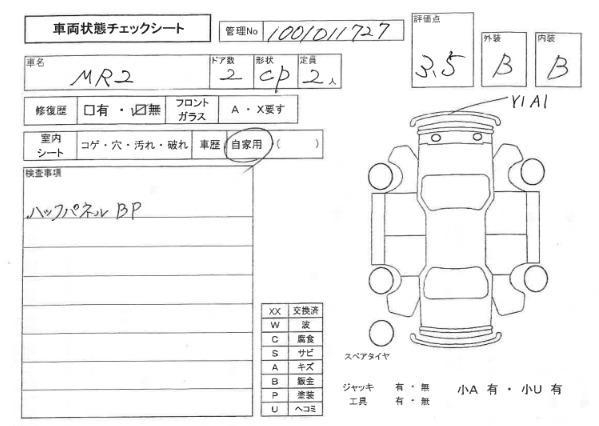 車両状態チェックシート
管理No 1001011727
評価点 3.5
外装 B
内装 B
車名 MR2
ドア数 2
形状 CP
定員 2人
修復歴 □有・☑無
フロントガラス A・X要す
室内シート コゲ・穴・汚れ・破れ
車歴 自家用・( )
検査事項
バックパネル BP
Y1 A1
XX 交換済
W 波
C 腐食
S サビ
A キズ
B 鈑金
P 塗装
U ヘコミ
スペアタイヤ
ジャッキ 有・無
工具 有・無
小A 有・小U 有